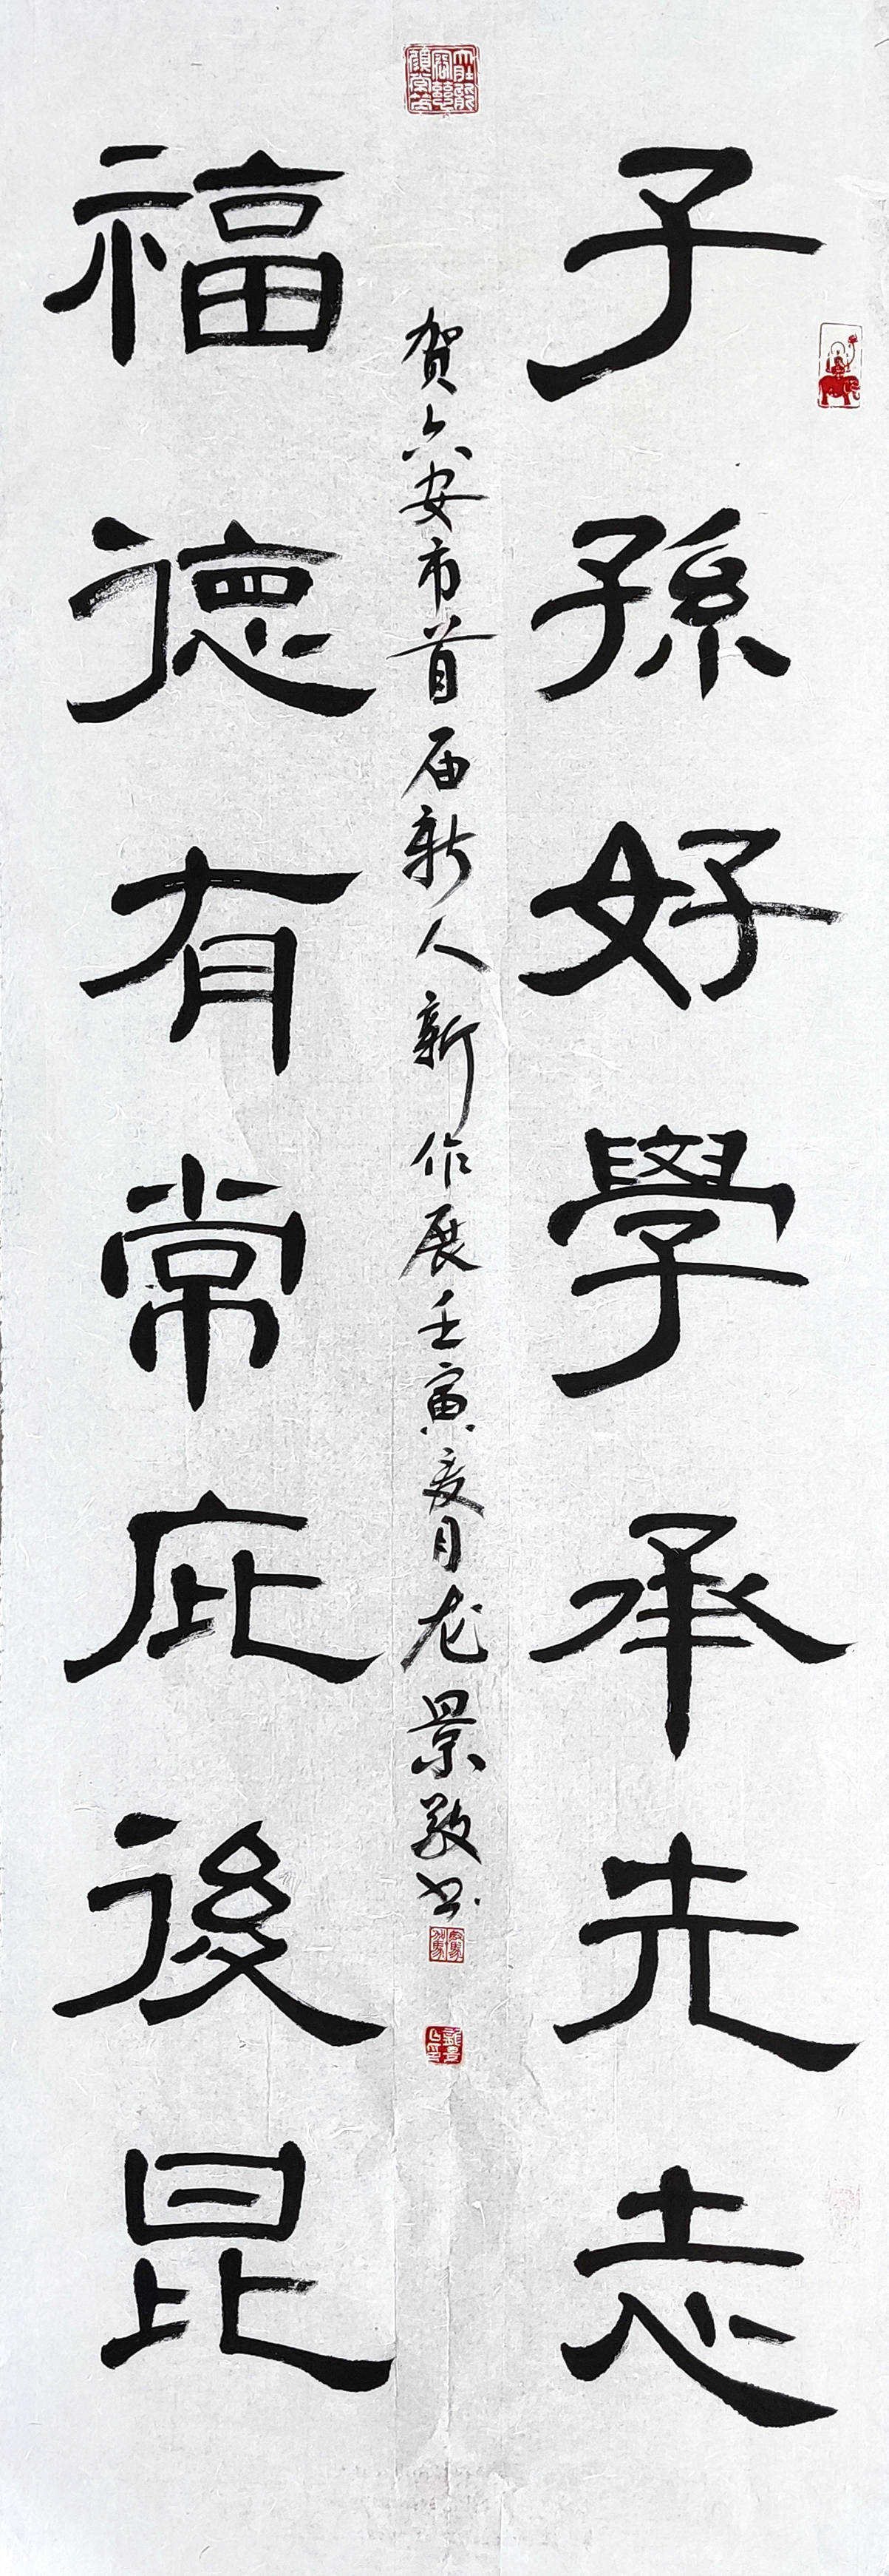 子孫好學承先志
贺六安市首届新人新作展壬寅夏月龙景敬书
福德有常庇後昆